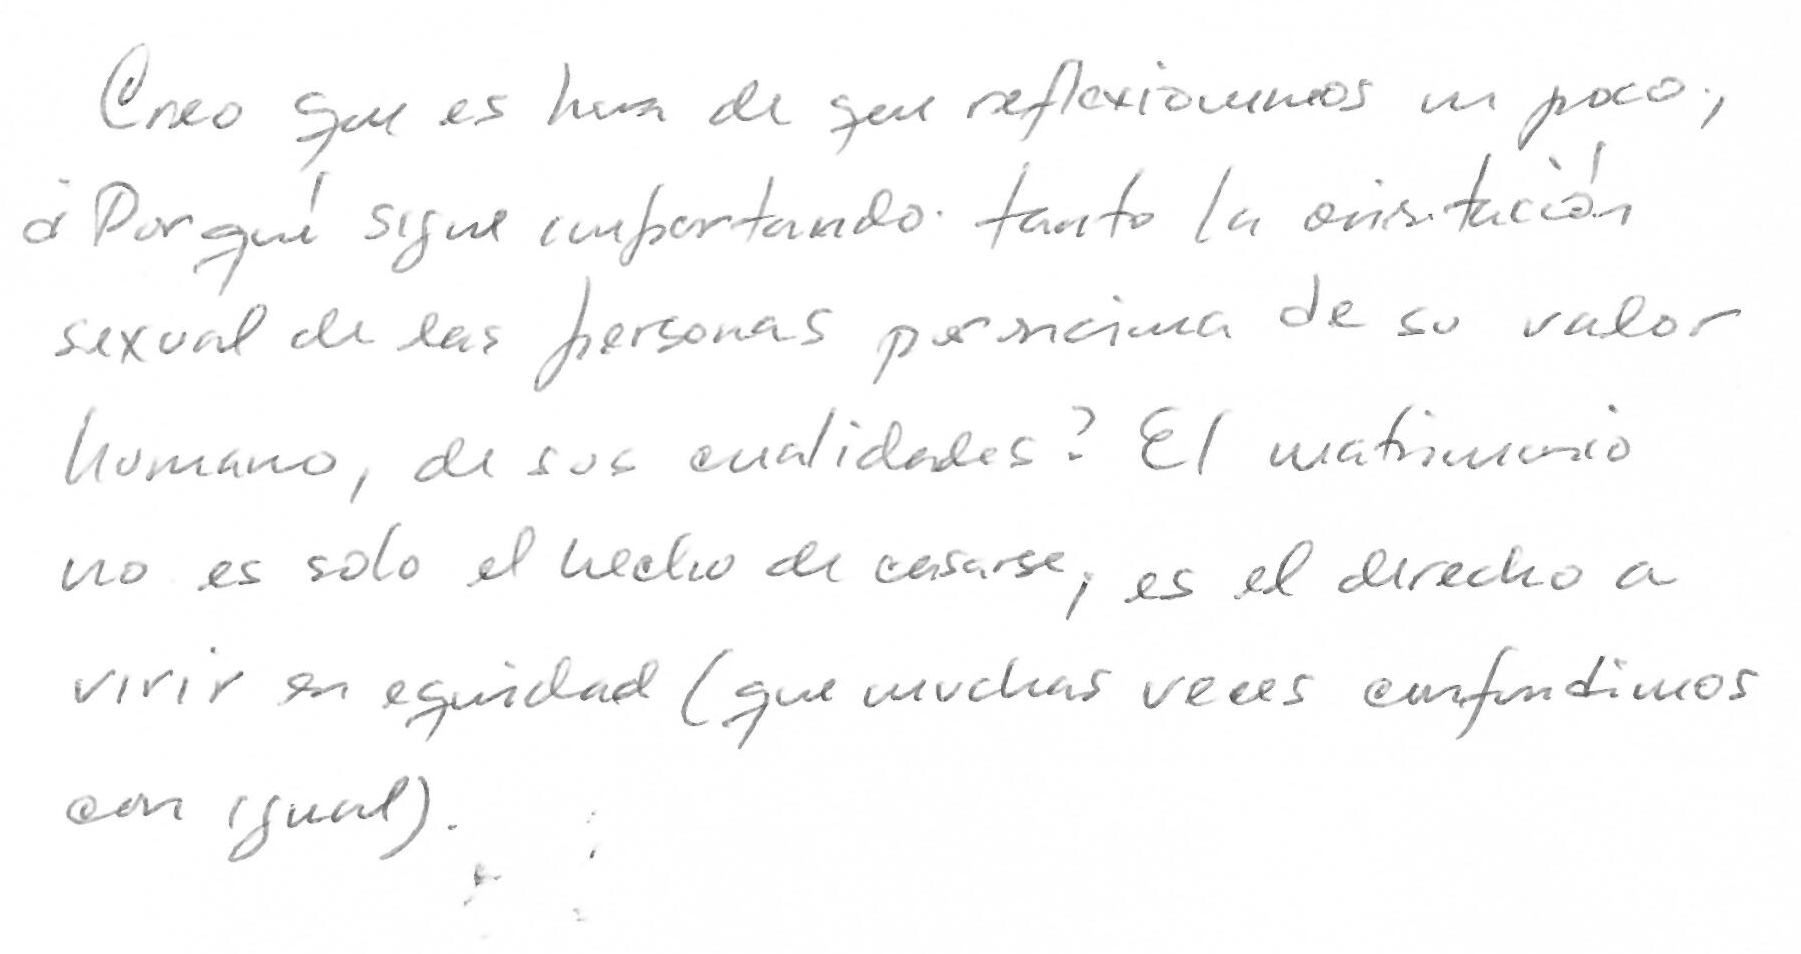 Creo que es hora de que reflexionemos un poco,
¿Por qué sigue importando tanto la orientación
sexual de las personas por encima de su valor
humano, de sus cualidades? El matrimonio
no es solo el hecho de casarse, es el derecho a
vivir en equidad (que muchas veces confundimos
con igual).